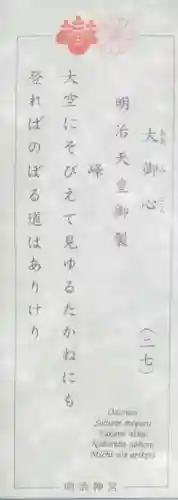 大御心
おお み ごころ
明治天皇御製
(二七)
峰
大空にそびえて見ゆるたかねにも
登ればのぼる道はありけり
Oozorani
Sobiete miyuru
Takane nimo
Noboreba noboru
Michi wa arikeri
明治神宮